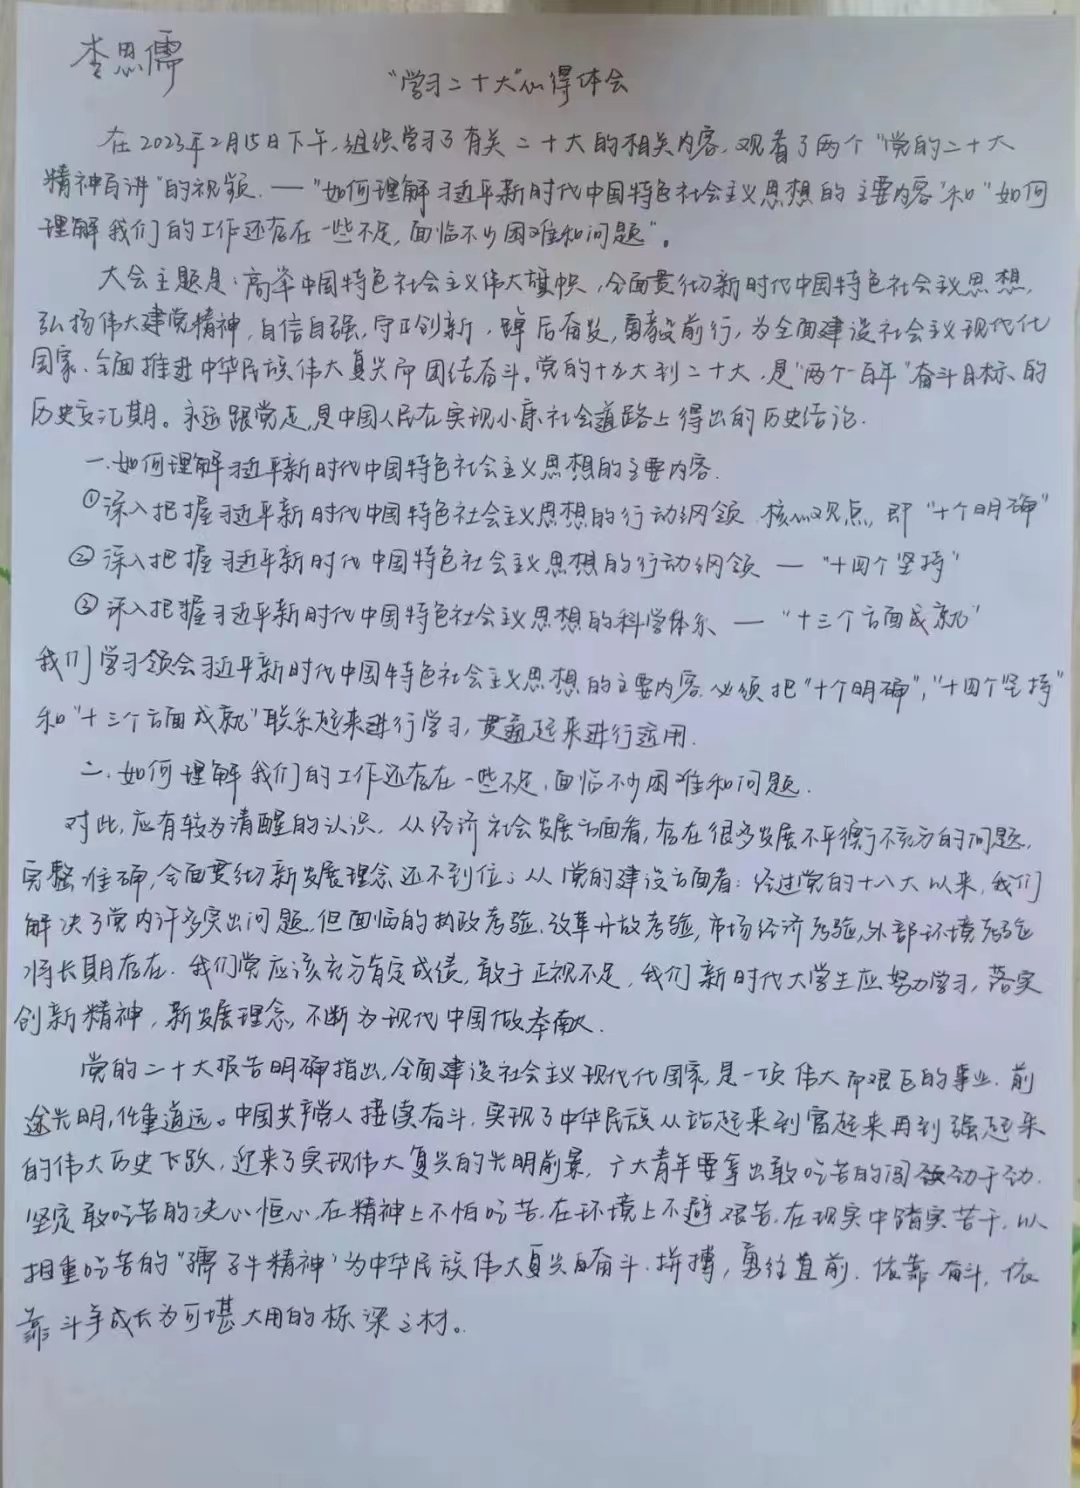 李思儒
“学习二十大”心得体会
在2023年2月15日下午,组织学习了有关二十大的相关内容,观看了两个“党的二十大
精神百讲”的视频.——“如何理解习近平新时代中国特色社会主义思想的主要内容”和“如何
理解我们的工作还存在一些不足,面临不少困难和问题”。
大会主题是:高举中国特色社会主义伟大旗帜,全面贯彻新时代中国特色社会主义思想,
弘扬伟大建党精神,自信自强,守正创新,踔厉奋发,勇毅前行,为全面建设社会主义现代化
国家、全面推进中华民族伟大复兴而团结奋斗。党的十九大到二十大,是“两个一百年”奋斗目标的
历史交汇期。永远跟党走,是中国人民在实现小康社会道路上得出的历史结论.
一.如何理解习近平新时代中国特色社会主义思想的主要内容.
①深入把握习近平新时代中国特色社会主义思想的行动纲领.核心观点,即“十个明确”
②深入把握习近平新时代中国特色社会主义思想的行动纲领—“十四个坚持”
③深入把握习近平新时代中国特色社会主义思想的科学体系—“十三个方面成就”
我们学习领会习近平新时代中国特色社会主义思想的主要内容.必须把“十个明确”,“十四个坚持”
和“十三个方面成就”联系起来进行学习,贯通起来进行运用.
二.如何理解我们的工作还存在一些不足,面临不少困难和问题.
对此,应有较为清醒的认识.从经济社会发展方面看,存在很多发展不平衡不充分的问题,
完整准确,全面贯彻新发展理念还不到位;从党的建设方面看:经过党的十八大以来,我们
解决了党内许多突出问题,但面临的执政考验.改革开放考验,市场经济考验,外部环境考验
将长期存在.我们党应该充分肯定成绩,敢于正视不足,我们新时代大学生应努力学习,落实
创新精神,新发展理念,不断为现代中国做奉献.
党的二十大报告明确指出,全面建设社会主义现代化国家,是一项伟大而艰巨的事业.前
途光明,任重道远。中国共产党人接续奋斗,实现了中华民族从站起来到富起来再到强起来
的伟大历史飞跃,迎来了实现伟大复兴的光明前景,广大青年要拿出敢吃苦的闯劲干劲.
坚定敢吃苦的决心恒心,在精神上不怕吃苦,在环境上不避艰苦,在现实中踏实苦干,以
担重吃苦的“孺子牛精神”为中华民族伟大复兴而奋斗.拼搏,勇往直前.依靠奋斗,依
靠斗争成长为可堪大用的栋梁之材。